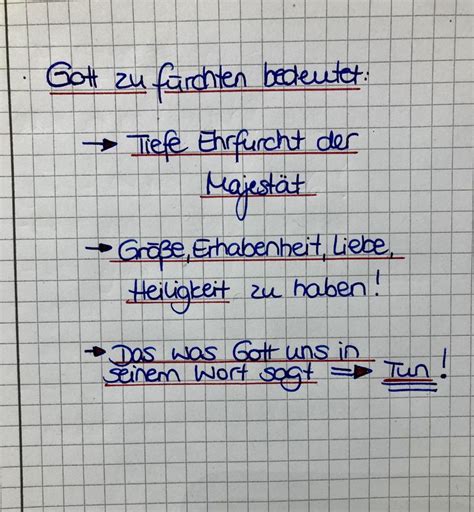 Gott zu fürchten bedeutet:
→ Tiefe Ehrfurcht der
Majestät
→ Größe, Erhabenheit, Liebe,
Heiligkeit zu haben!
→ Das was Gott uns in
seinem Wort sagt ⇒ Tun!